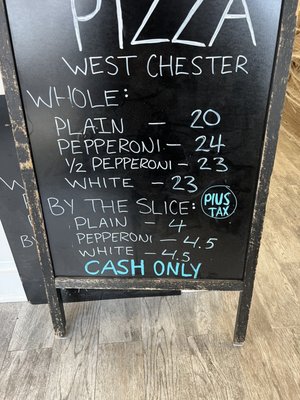 PIZZA
WEST CHESTER
WHOLE:
PLAIN — 20
PEPPERONI — 24
1/2 PEPPERONI — 23
WHITE — 23
BY THE SLICE:
PLUS
TAX
PLAIN — 4
PEPPERONI — 4.5
WHITE — 4.5
CASH ONLY